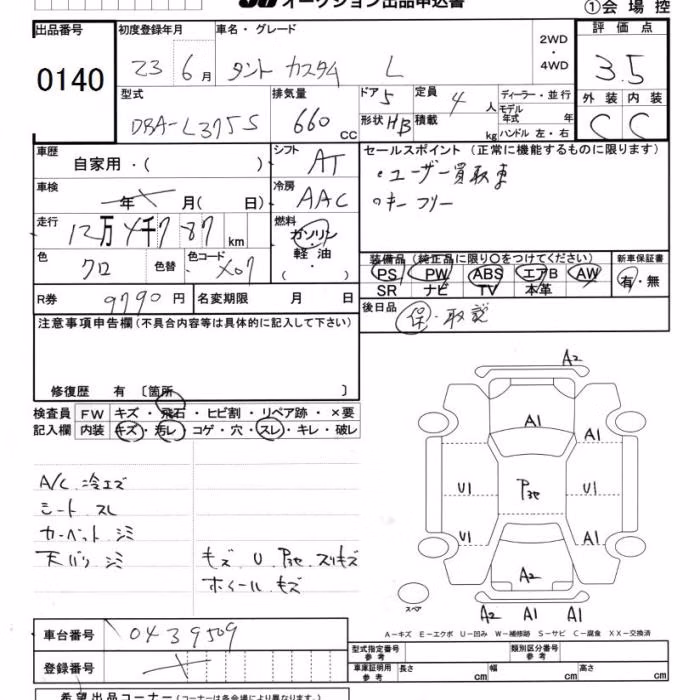 オークション出品申込書 ①会場控
出品番号 初度登録年月 車名・グレード 2WD・4WD 評価点
0140 23 6月 タント カスタム L 3.5
型式 排気量 ドア 5 定員 4人 ディーラー・並行 外装 内装
DBA-L375S 660 CC 形状 HB 積載 kg モデル年式 年 C C
ハンドル 左・右
車歴 自家用・( ) シフト AT セールスポイント (正常に機能するものに限ります)
車検 年 月( 日) 冷房 AAC ・ユーザー買取車
走行 12万4千787km 燃料 ガソリン・軽油・( ) ・キーフリー
色 クロ 色替 色コード X07 装備品 (純正品に限り○をつけてください) 新車保証書
PS PW ABS エアB AW 有・無
SR ナビ TV 本革
R券 9790円 名変期限 月 日 後日品 保・取説
注意事項申告欄(不具合内容等は具体的に記入して下さい)
修復歴 有 〔箇所 〕
検査員 FW キズ・飛石・ヒビ割・リペア跡・×要
記入欄 内装 キズ・汚レ・コゲ・穴・スレ・キレ・破レ
A/C 冷エズ
シート スレ
カーペット シミ
天バリ シミ
キズ U スリキズ
ホイール キズ
A2
A1 A1
U1 U1
U1 A1
A2
スペア A2 A1 A1
A-キズ E-エクボ U-凹み W-補修跡 S-サビ C-腐食 XX-交換済
車台番号 0439509 型式指定番号 参考 類別区分番号 参考
登録番号 車庫証明用 参考 長さ cm 幅 cm 高さ cm
希望出品コーナー(コーナーは各会場により異なります。)